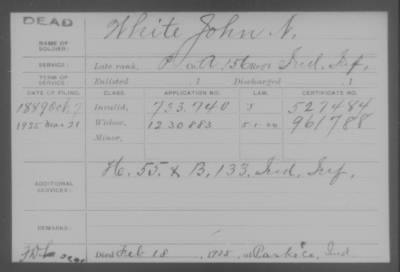 DEAD
White John N.
NAME OF SOLDIER:
SERVICE: Late rank, P Co. A 156 Reg't Ind. Inf.
TERM OF SERVICE: Enlisted , 1 Discharged , 1
DATE OF FILING. CLASS. APPLICATION NO. LAW. CERTIFICATE NO.
1889 Oct 7 Invalid, 733.740 527484
1925 Mar 21 Widow, 1230883 5-1-20 961788
Minor,
ADDITIONAL SERVICES: H. 55. & B, 133, Ind, Inf.
REMARKS:
Died Feb 18, 1925, at Parke Co, Ind.